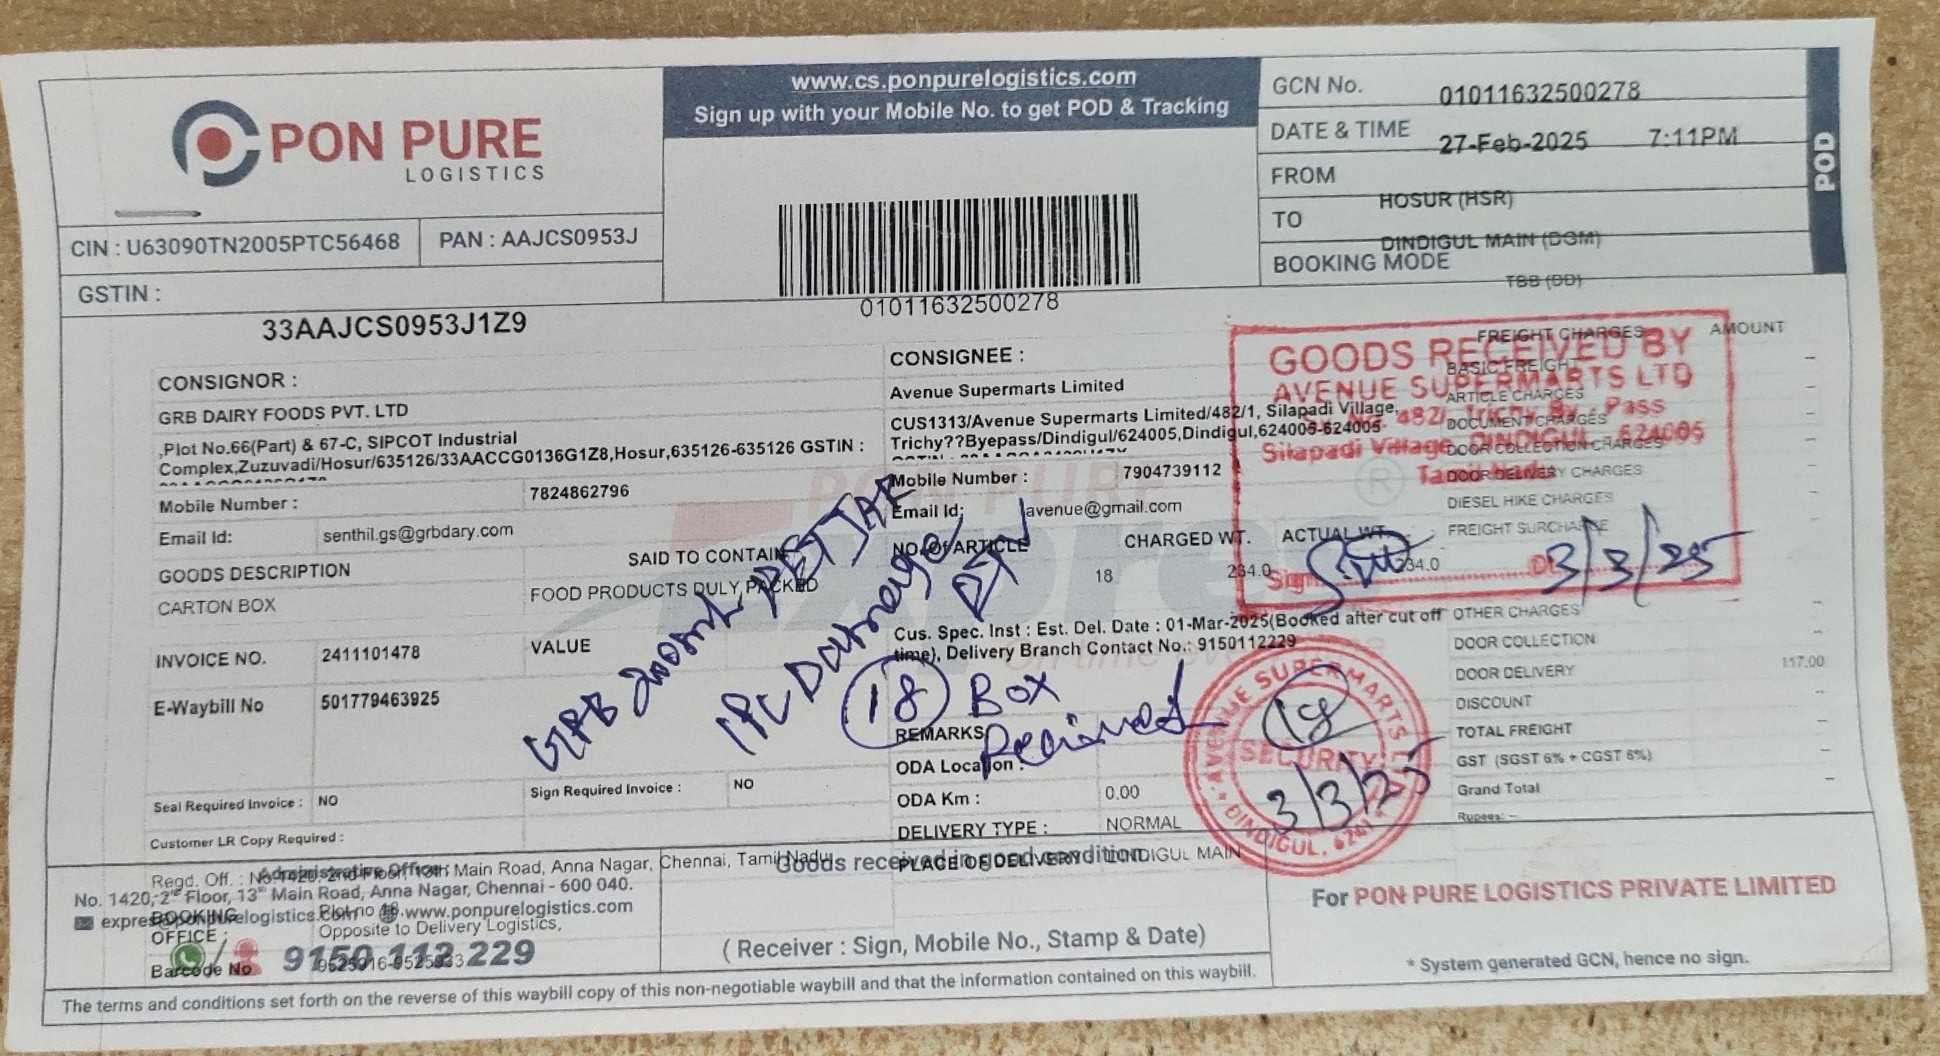 PON PURE
LOGISTICS
www.cs.ponpurelogistics.com
Sign up with your Mobile No. to get POD & Tracking
GCN No. 01011632500278
DATE & TIME 27-Feb-2025 7:11PM
FROM HOSUR (HSR)
TO DINDIGUL MAIN (DGM)
BOOKING MODE TBB (DD)
POD
CIN : U63090TN2005PTC56468 PAN : AAJCS0953J
GSTIN :
33AAJCS0953J1Z9
01011632500278
CONSIGNOR :
GRB DAIRY FOODS PVT. LTD
,Plot No.66(Part) & 67-C, SIPCOT Industrial
Complex,Zuzuvadi/Hosur/635126/33AACCG0136G1Z8,Hosur,635126-635126 GSTIN :
Mobile Number : 7824862796
Email Id: senthil.gs@grbdary.com
GOODS DESCRIPTION SAID TO CONTAIN
CARTON BOX FOOD PRODUCTS DULY PACKED
INVOICE NO. 2411101478 VALUE
E-Waybill No 501779463925
Seal Required Invoice : NO Sign Required Invoice : NO
Customer LR Copy Required :
CONSIGNEE :
Avenue Supermarts Limited
CUS1313/Avenue Supermarts Limited/482/1, Silapadi Village,
Trichy??Byepass/Dindigul/624005,Dindigul,624005-624005
Mobile Number : 7904739112
Email Id: avenue@gmail.com
NO. Of ARTICLE CHARGED WT. ACTUAL WT.
18 234.0 234.0
Cus. Spec. Inst : Est. Del. Date : 01-Mar-2025(Booked after cut off
time), Delivery Branch Contact No.: 9150112229
REMARKS
ODA Location :
ODA Km : 0.00
DELIVERY TYPE : NORMAL
PLACE OF DELIVERY DINDIGUL MAIN
FREIGHT CHARGES AMOUNT
BASIC FREIGHT -
ARTICLE CHARGES -
DOCUMENT CHARGES -
DOOR COLLECTION CHARGES -
DOOR DELIVERY CHARGES
DIESEL HIKE CHARGES -
FREIGHT SURCHARGE -
OTHER CHARGES -
DOOR COLLECTION -
DOOR DELIVERY 117.00
DISCOUNT -
TOTAL FREIGHT -
GST (SGST 6% + CGST 6%) -
Grand Total -
Rupees: -
GOODS RECEIVED BY
AVENUE SUPERMARTS LTD
482/ Trichy By Pass
Silapadi Village, DINDIGUL 624005
Sign
3/3/25
PET JAR
1 PC Damage
RTN
18 Box
Received
AVENUE SUPERMARTS
SECURITY
DINDIGUL
18
3/3/25
PON PURE
Expres
®
Regd. Off. :
Main Road, Anna Nagar, Chennai, Tamil Nadu
Administrative Office
No. 1420, 2nd Floor, 13th Main Road, Anna Nagar, Chennai - 600 040.
www.ponpurelogistics.com
BOOKING
OFFICE :
Plot no
Opposite to Delivery Logistics,
9150 112 229
Barcode No 9525916-9525933
Goods received in good condition
( Receiver : Sign, Mobile No., Stamp & Date)
For PON PURE LOGISTICS PRIVATE LIMITED
* System generated GCN, hence no sign.
The terms and conditions set forth on the reverse of this waybill copy of this non-negotiable waybill and that the information contained on this waybill.